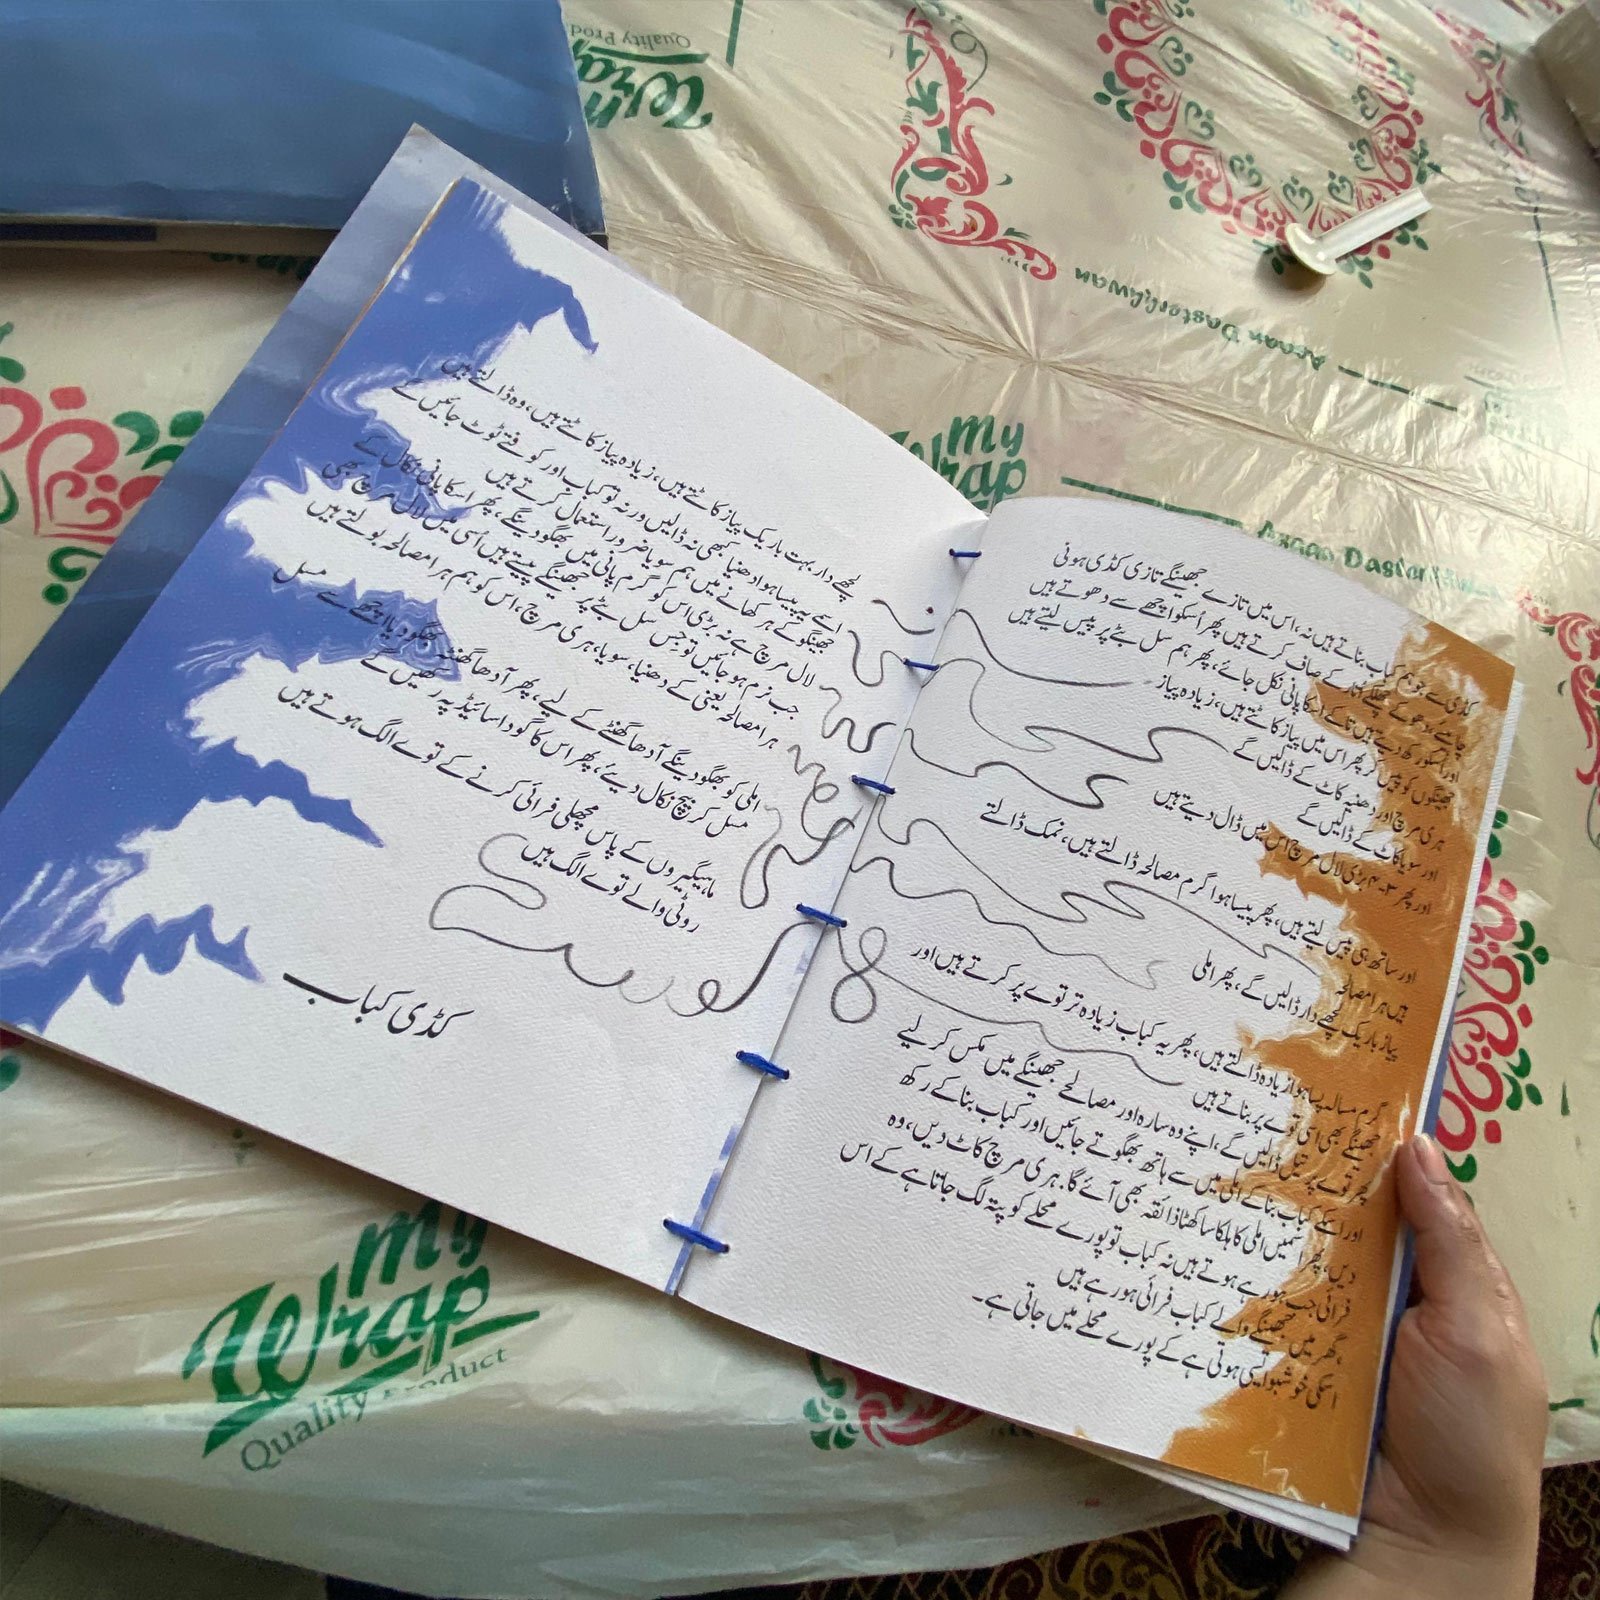 کڈی سے جو ہم کباب بناتے ہیں نہ، اس میں تازے جھینگے تازی کڈی ہونی
چاہیے، دھوکے چھلکے اتار کے صاف کرتے ہیں پھر اُسکو اچھے سے دھوتے ہیں
اور اسکو رکھ دیتے ہیں تاکے اسکا پانی نکل جائے، پھر ہم سل بٹے پر پیس لیتے ہیں
جھینگوں کو پیس کر پھر اس میں پیاز کاٹتے ہیں، زیادہ پیاز
ہری مرچ اور دھنیہ کاٹ کے ڈالیں گے
اور سویا کاٹ کے ڈالیں گے
اور پھر ۳-۴ بڑی لال مرچ اس میں ڈال دیتے ہیں
اور ساتھ ہی پیس لیتے ہیں، پھر پیسا ہوا گرم مصالحہ ڈالتے ہیں، نمک ڈالتے
ہیں ہرا مصالحہ
پیاز باریک لچھے دار ڈالیں گے، پھر املی
گرم مسالہ پسا ہوا زیادہ ڈالتے ہیں، پھر یہ کباب زیادہ تر توے پر کرتے ہیں اور
جھینگے بھی اسی توے پر بناتے ہیں
پھر توے پر تیل ڈالیں گے، اپنے وہ سارہ اور مصالحے جھینگے میں مکس کر لیے
اور اسکے کباب بنا کے املی میں سے ہاتھ بھگوتے جائیں اور کباب بنا کے رکھ
دیں، پھر اسمیں املی کا ہلکا سا کھٹا ذائقہ بھی آئے گا۔ ہری مرچ کاٹ دیں، وہ
فرائی جب ہو رہے ہوتے ہیں نہ کباب تو پورے محلے کو پتہ لگ جاتا ہے کے اس
گھر میں جھینگے والے کباب فرائی ہو رہے ہیں
اسکی خوشبو ایسی ہوتی ہے کے پورے محلے میں جاتی ہے۔
لچھے دار بہت باریک پیاز کاٹتے ہیں، زیادہ پیاز کاٹتے ہیں، وہ ڈالتے ہیں
اسے یہ پیسا ہوا دھنیا کبھی نہ ڈالیں ورنہ تو کباب اور کوفتے ٹوٹ جائیں گے
جھینگو کے ہر کھانے میں ہم سویا ضرور استعمال کرتے ہیں
لال مرچ ہے نہ بڑی اس کو گرم پانی میں بھگو دینگے، پھر اسکا پانی نکال کے
جب نرم ہو جائیں تو جس سل بٹے پر جھینگے پیستے ہیں اُسی میں لال مرچ بھی
ہرا مصالحہ یعنی کے دھنیا، سویا، ہری مرچ، اس کو ہم ہرا مصالحہ بولتے ہیں
املی کو بھگو دینگے آدھا گھنٹے کے لیے، پھر آدھا گھنٹہ بھگو دیا اچھے سے مسل
مسل کر بیچ نکال دیے، پھر اس کا گودا سائیڈ پہ رکھیں گے
ماہیگیروں کے پاس مچھلی فرائی کرنے کے توے الگ ہوتے ہیں
روٹی والے توے الگ ہیں
کڈی کباب
My
Wrap
Quality Product
My
Wrap
Azaan Dastarkhwan
Azaan Dastarkhwan
Wrap
Quality Prod